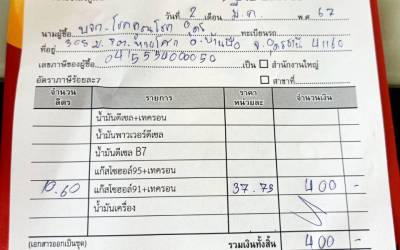 วันที่ 2 เดือน มี.ค. พ.ศ 67
นามผู้ซื้อ บจก. โชคคูณโชค อุดร ทะเบียนรถ
ที่อยู่ 305 ม. อ.บ้านผือ จ.อุดรธานี 41160
เลขภาษีของผู้ซื้อ 0415534000050 เป็น สำนักงานใหญ่
อัตราภาษีร้อยละ7 สาขาที่
จำนวน ลิตร รายการ ราคา หน่วยละ จำนวนเงิน
น้ำมันดีเซล+เทครอน
น้ำมันพาวเวอร์ดีเซล
น้ำมันดีเซล B7
แก๊สโซฮอล์95+เทครอน
10.60 แก๊สโซฮอล์91+เทครอน 37.75 400 -
น้ำมันเครื่อง
(เอกสารออกเป็นชุด) รวมเงินทั้งสิ้น 400 -